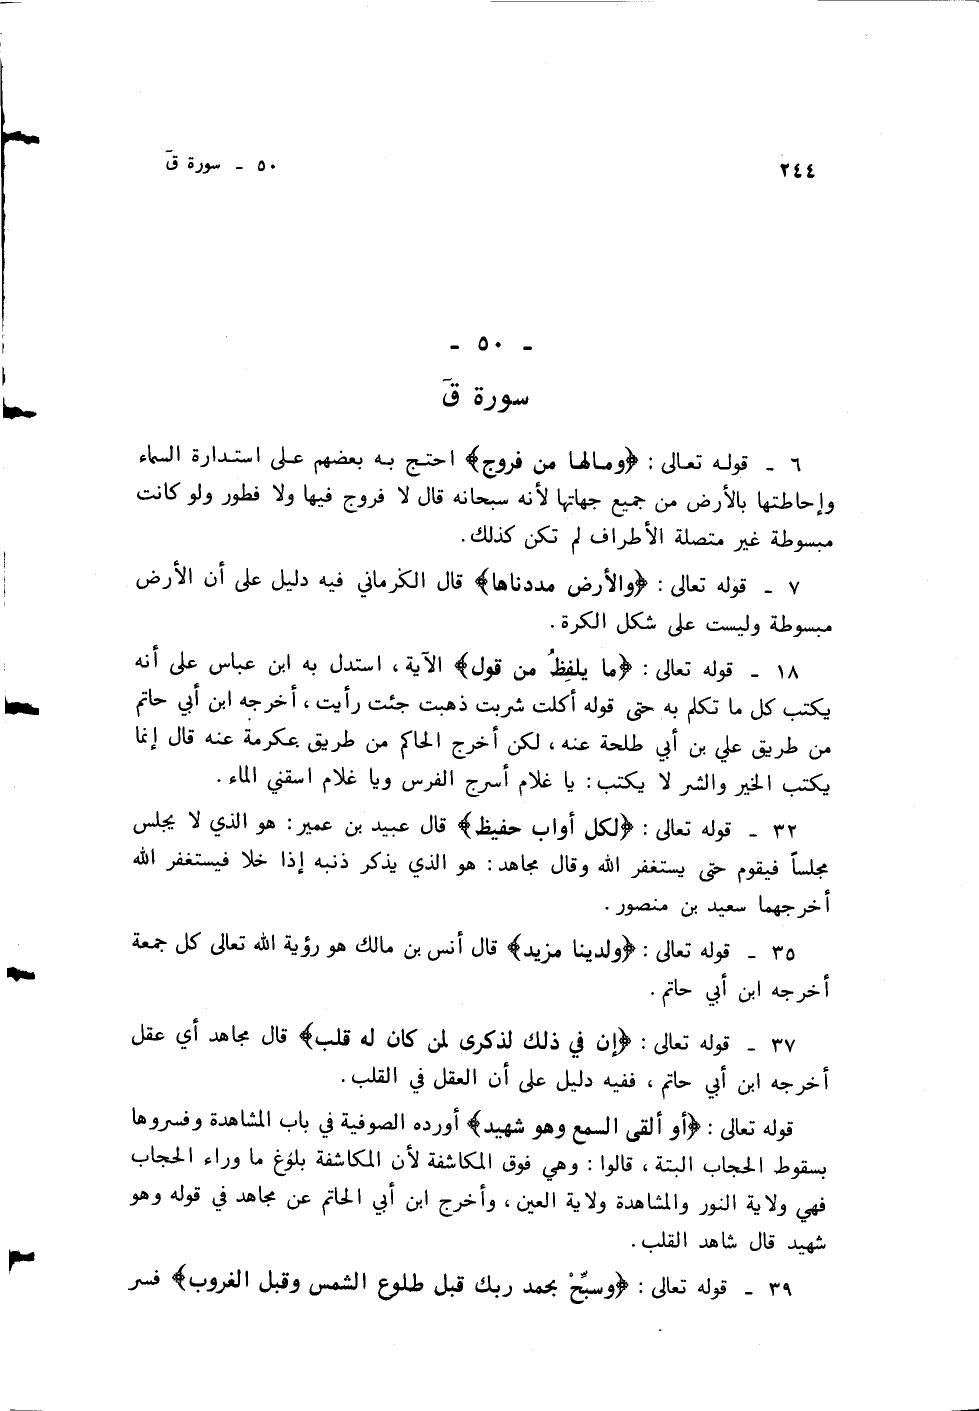 ٢٤٤
٥٠ ـ سورة قٓ
ـ ٥٠ ـ
سورة قٓ
٦ ـ قوله تعالى : ﴿ومالها من فروج﴾ احتج به بعضهم على استدارة السماء
وإحاطتها بالأرض من جميع جهاتها لأنه سبحانه قال لا فروج فيها ولا فطور ولو كانت
مبسوطة غير متصلة الأطراف لم تكن كذلك .
٧ ـ قوله تعالى : ﴿والأرض مددناها﴾ قال الكرماني فيه دليل على أن الأرض
مبسوطة وليست على شكل الكرة .
١٨ ـ قوله تعالى : ﴿ما يلفِظُ من قول﴾ الآية ، استدل به ابن عباس على أنه
يكتب كل ما تكلم به حتى قوله أكلت شربت ذهبت جئت رأيت ، أخرجه ابن أبي حاتم
من طريق علي بن أبي طلحة عنه ، لكن أخرج الحاكم من طريق عكرمة عنه قال إنما
يكتب الخير والشر لا يكتب : يا غلام أسرج الفرس ويا غلام اسقني الماء .
٣٢ ـ قوله تعالى : ﴿لكل أواب حفيظ﴾ قال عبيد بن عمير : هو الذي لا يجلس
مجلساً فيقوم حتى يستغفر الله وقال مجاهد : هو الذي يذكر ذنبه إذا خلا فيستغفر الله
أخرجهما سعيد بن منصور .
٣٥ ـ قوله تعالى : ﴿ولدينا مزيد﴾ قال أنس بن مالك هو رؤية الله تعالى كل جمعة
أخرجه ابن أبي حاتم .
٣٧ ـ قوله تعالى : ﴿إن في ذلك لذكرى لمن كان له قلب﴾ قال مجاهد أي عقل
أخرجه ابن أبي حاتم ، ففيه دليل على أن العقل في القلب .
قوله تعالى : ﴿أو ألقى السمع وهو شهيد﴾ أورده الصوفية في باب المشاهدة وفسروها
بسقوط الحجاب البتة ، قالوا : وهي فوق المكاشفة لأن المكاشفة بلوُغ ما وراء الحجاب
فهي ولاية النور والمشاهدة ولاية العين ، وأخرج ابن أبي الحاتم عن مجاهد في قوله وهو
شهيد قال شاهد القلب .
٣٩ ـ قوله تعالى : ﴿وسبِّحْ بحمد ربك قبل طلوع الشمس وقبل الغروب﴾ فسر